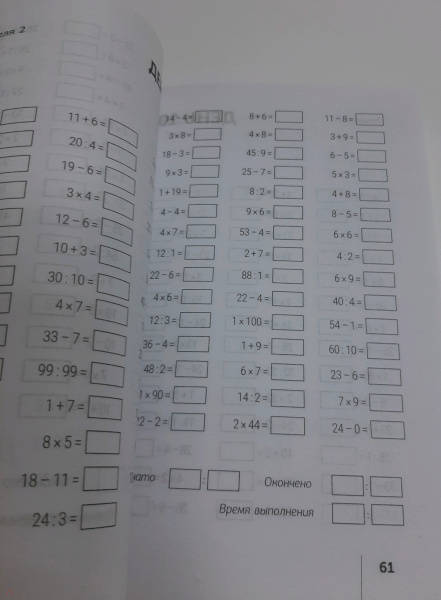 11+6=
20:4=
19-6=
3×4=
12-6=
10+3=
30:10=
4×7=
33-7=
99:99=
1+7=
8×5=
18-11=
24:3=
8+6= 11-8=
3×8= 4×8= 3+9=
18-3= 45:9= 6-5=
9×3= 25-7= 5×3=
1+19= 8:2= 4+8=
4-4= 9×6= 8-5=
4×7= 53-4= 6×6=
12:1= 2+7= 4:2=
22-6= 88:1= 6×9=
4×6= 22-4= 40:4=
12:3= 1×100= 54-1=
36-4= 1+9= 60:10=
48:2= 6×7= 23-6=
1×90= 14:2= 7×9=
2-2= 2×44= 24-0=
: Окончено :
Время выполнения :
61